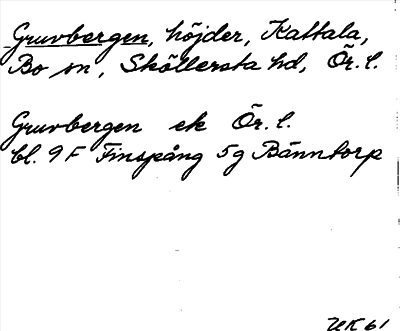 Gruvbergen, höjder, Kattala,
Bo sn, Sköllersta hd, Ör. l.
Gruvbergen ek Ör. l.
bl. 9 F Finspång 5g Bänntorp
UK 61